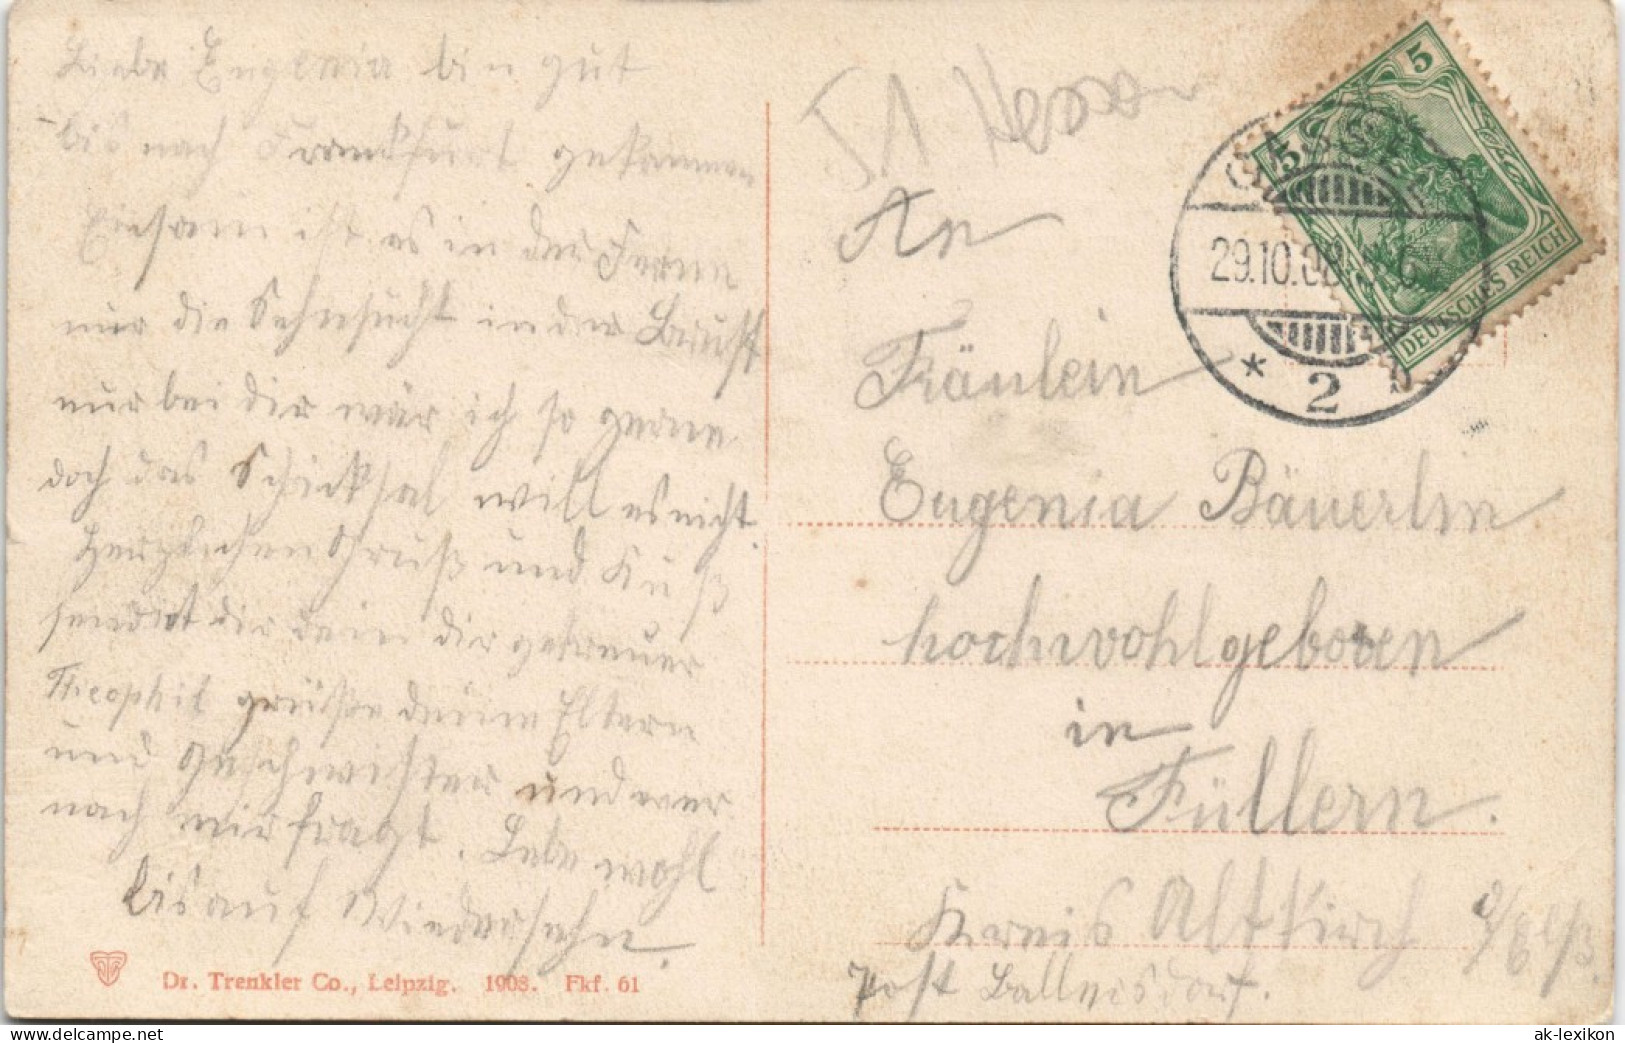 Liebe Eugenia bin gut
bis nach Frankfurt gekommen
Einsam ist es in der Ferne
nur die Sehnsucht in der Brust
nur bei dir wär ich so gerne
doch das Schicksal will es nicht.
Herzlichen Gruß und Kuß
sendet dir dein dir getreuer
Theophil grüße deine Eltern
und Geschwister und wer
nach mir fragt. Lebe wohl
bis auf Wiedersehn.
Dr. Trenkler Co., Leipzig. 1908. Fkf. 61
Hessen
An
Fräulein
Eugenia Bäuerlin
hochwohlgeboren
in
Füllern.
Kreis Altkirch
Post Ballersdorf.
5
5
DEUTSCHES REICH
CASSEL
29.10.08
* 2
hippostcard.com
ak-lexikon